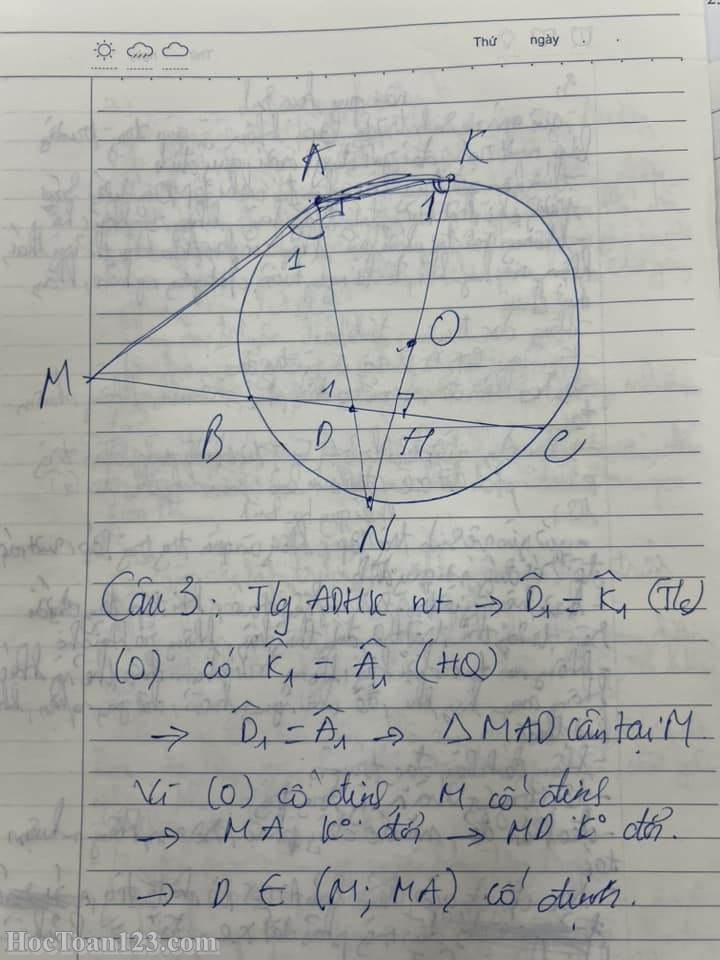 Thứ ngày . .
A
K
1
1
1
O
M
1
B
D
H
C
N
Câu 3: Tlg ADHK nt → D̂₁ = K̂₁ (Tlg)
(O) có K̂₁ = Â₁ (HQ)
→ D̂₁ = Â₁ → Δ MAD cân tại M
Vì (O) cố định, M cố định
→ MA k° đổi → MD k° đổi.
→ D ∈ (M; MA) cố định.
HocToan123.com